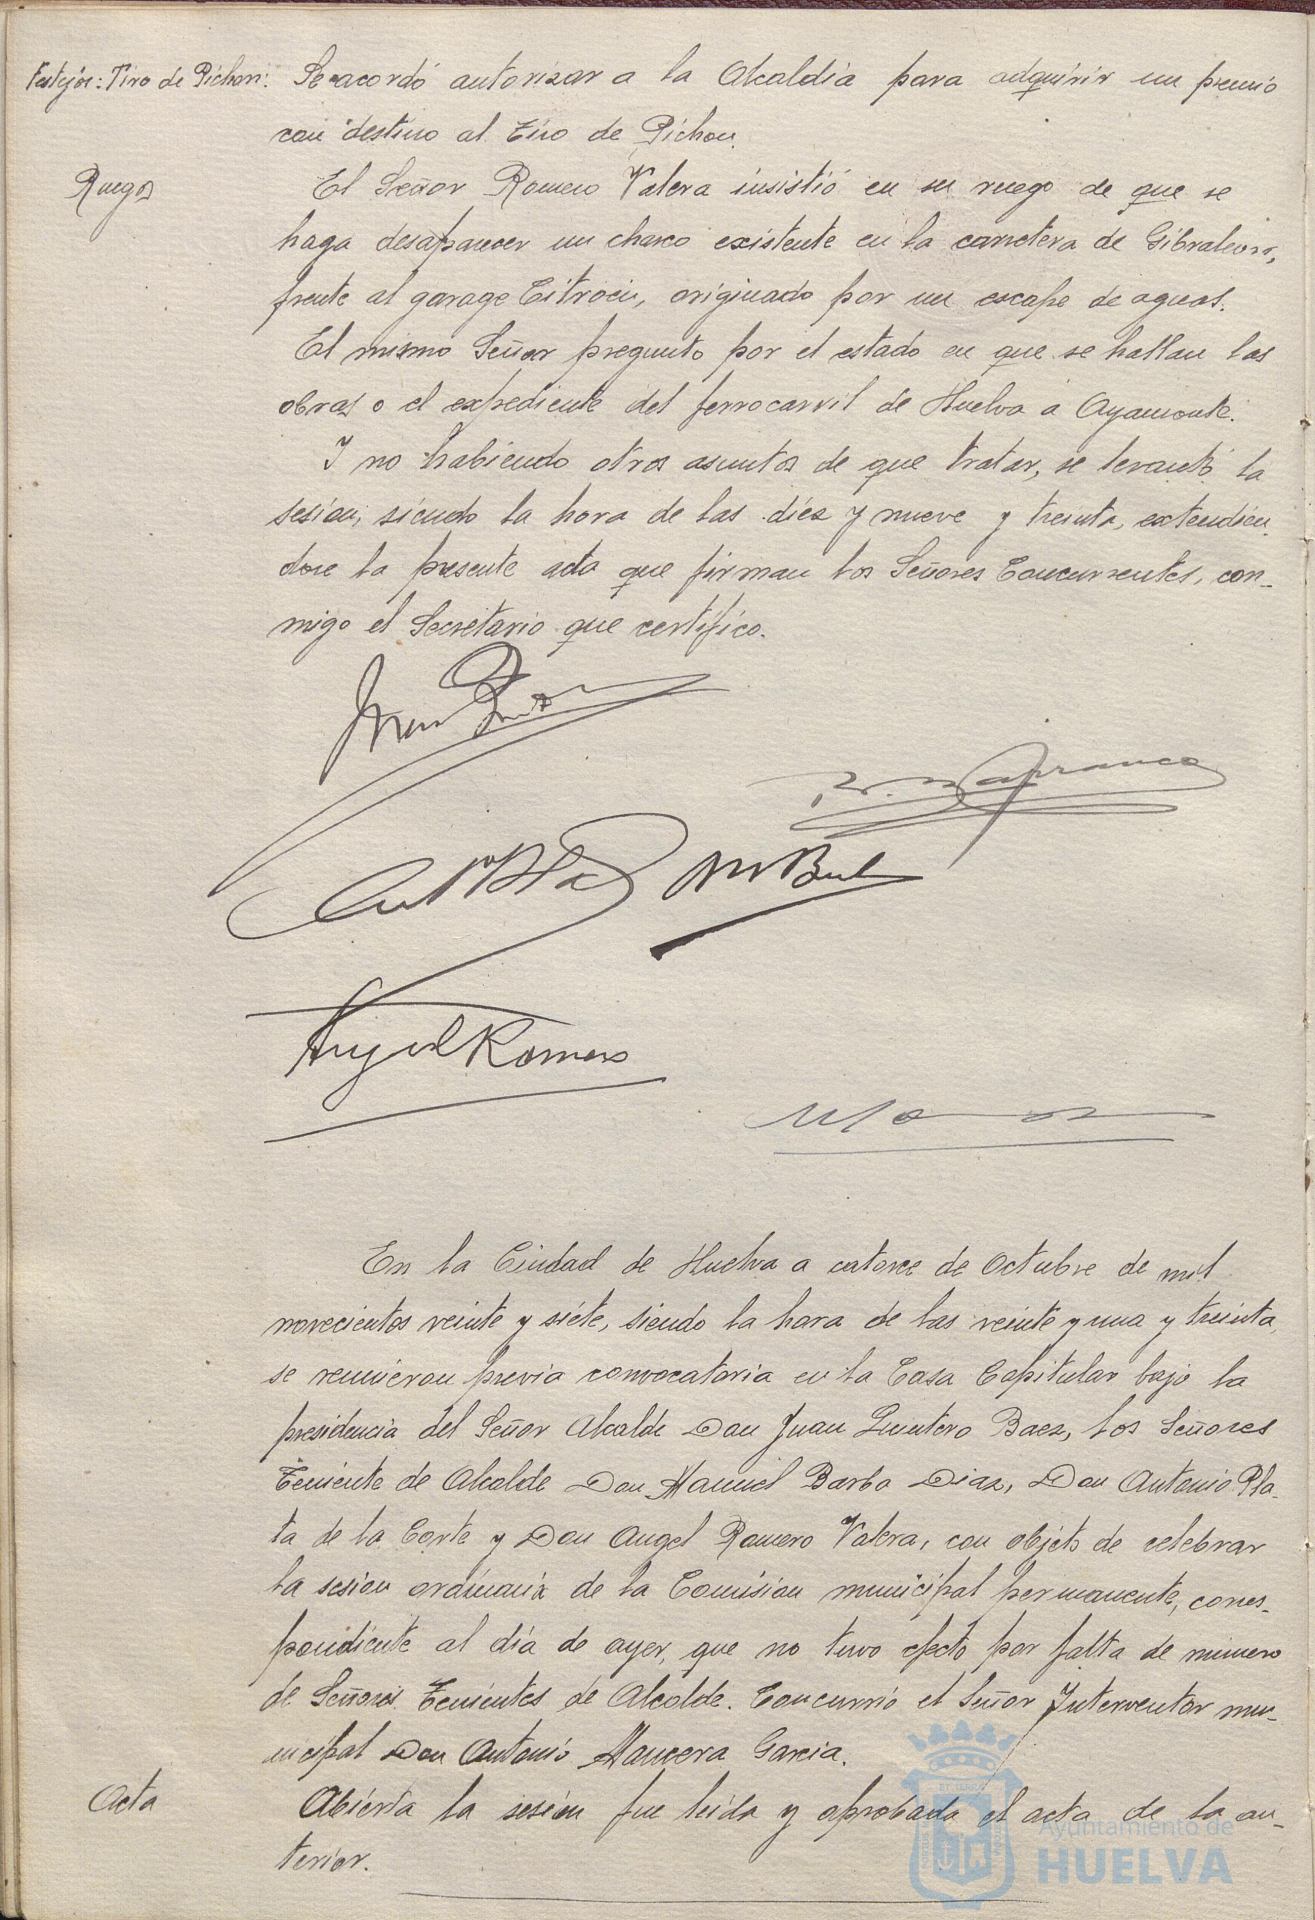 Festejos: Tiro de Pichon: Se acordó autorizar a la Alcaldia para adquirir un premio
con destino al Tiro de Pichon.
Ruegos El Señor Romero Valera insistió en su ruego de que se
haga desaparecer un charco existente en la carretera de Gibraleon,
frente al garage Citroen, originado por un escape de aguas.
El mismo Señor pregunto por el estado en que se hallan las
obras o el expediente del ferrocarril de Huelva a Ayamonte.
Y no habiendo otros asuntos de que tratar, se levantó la
sesion, siendo la hora de las diez y nueve y treinta, extendien
dose la presente acta que firman los Señores Concurrentes, con-
migo el Secretario que certifico.
Angel Romero
En la Ciudad de Huelva a catorce de Octubre de mil
novecientos veinte y siete, siendo la hora de las veinte y una y treinta,
se reunieron previa convocatoria en la Casa Capitular bajo la
presidencia del Señor Alcalde Don Juan Quintero Baez, los Señores
Teniente de Alcalde Don Manuel Barba Diaz, Don Antonio Pla-
ta de la Corte y Don Angel Romero Valera, con objeto de celebrar
la sesion ordinaria de la Comision municipal permanente, corres-
pondiente al día de ayer, que no tuvo efecto por falta de numero
de Señores Tenientes de Alcalde. Concurrió el Señor Interventor mu-
nicipal Don Antonio Mancera Garcia.
Acta Abierta la sesión fue leida y aprobada el acta de la an-
terior.
Ayuntamiento de
HUELVA